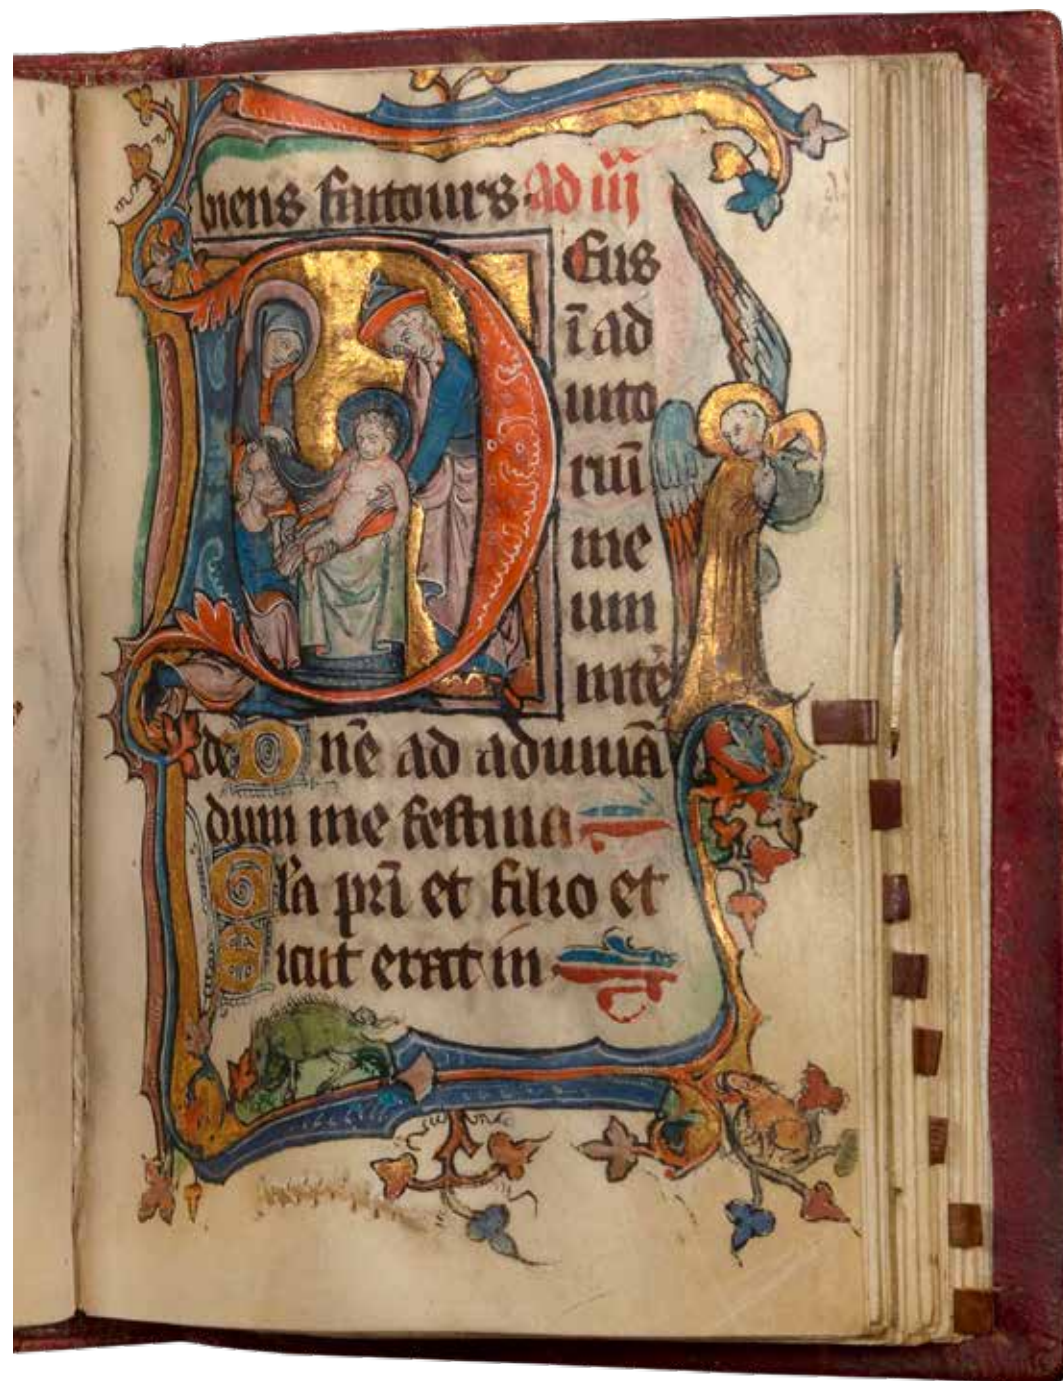 biens fattours Ad iij
Eus
ī ad
iuto
riū
me
um
inte
de Dñe ad adiuuā
dum me festina
Gl'a pri et filio et
Sicut erat in